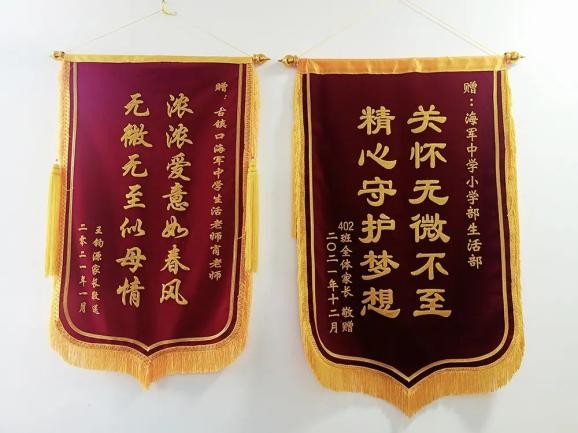 赠：古镇口海军中学生活老师肖老师
浓浓爱意如春风
无微无至似母情
王钧源家长敬送
二零二一年一月
赠：海军中学小学部生活部
关怀无微不至
精心守护梦想
402班全体家长 敬赠
二〇二一年十二月